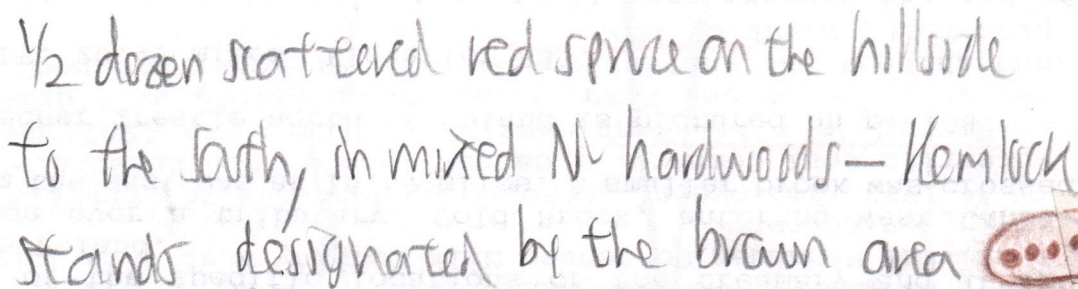 1/2 dozen scattered red spruce on the hillside
to the South, in mixed N hardwoods - Hemlock
stands designated by the brown area